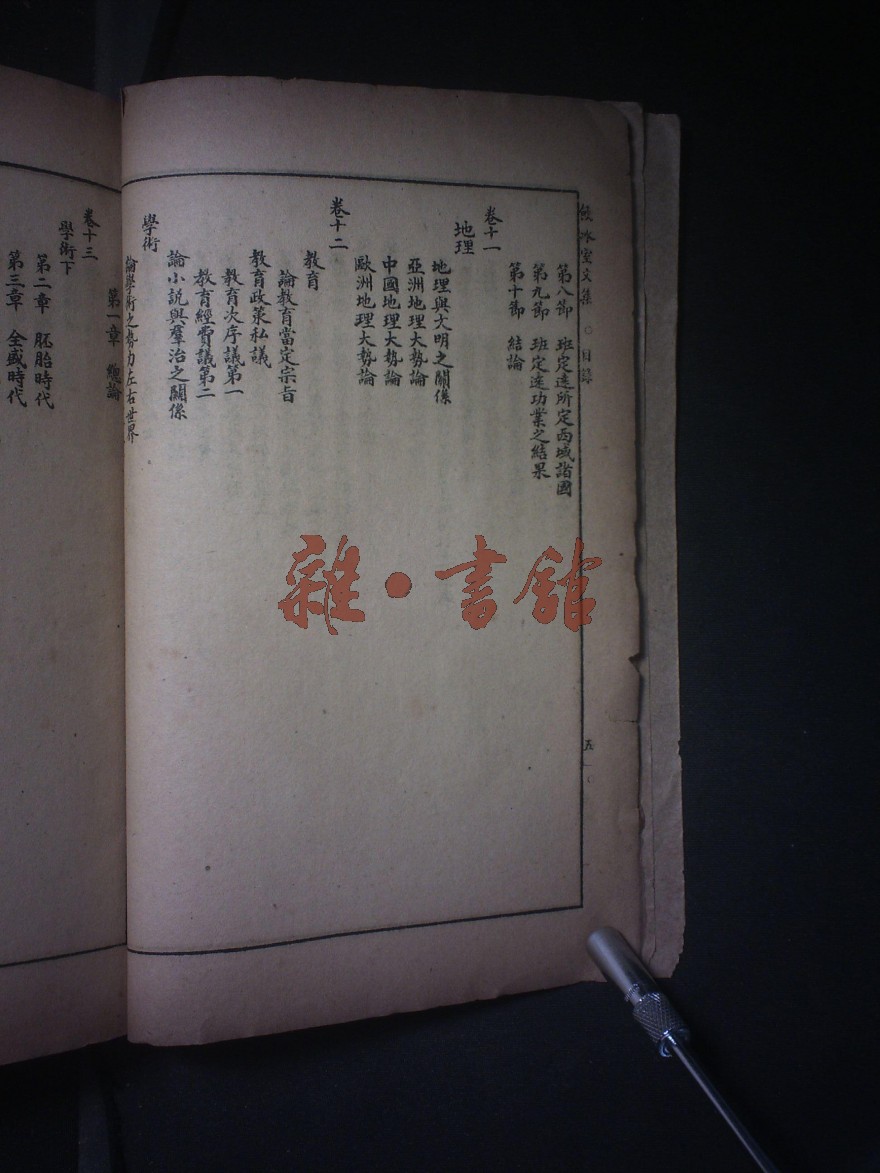 飲冰室文集 ○ 目錄
第八節 班定遠所定西域諸國
第九節 班定遠功業之結果
第十節 結論
卷十一
地理
地理與文明之關係
亞洲地理大勢論
中國地理大勢論
歐洲地理大勢論
卷十二
教育
論教育當定宗旨
教育政策私議
教育次序議第一
教育經費議第二
論小說與羣治之關係
學術
論學術之勢力左右世界
五
第一章 總論
卷十三
學術下
第二章 胚胎時代
第三章 全盛時代
雜·書館